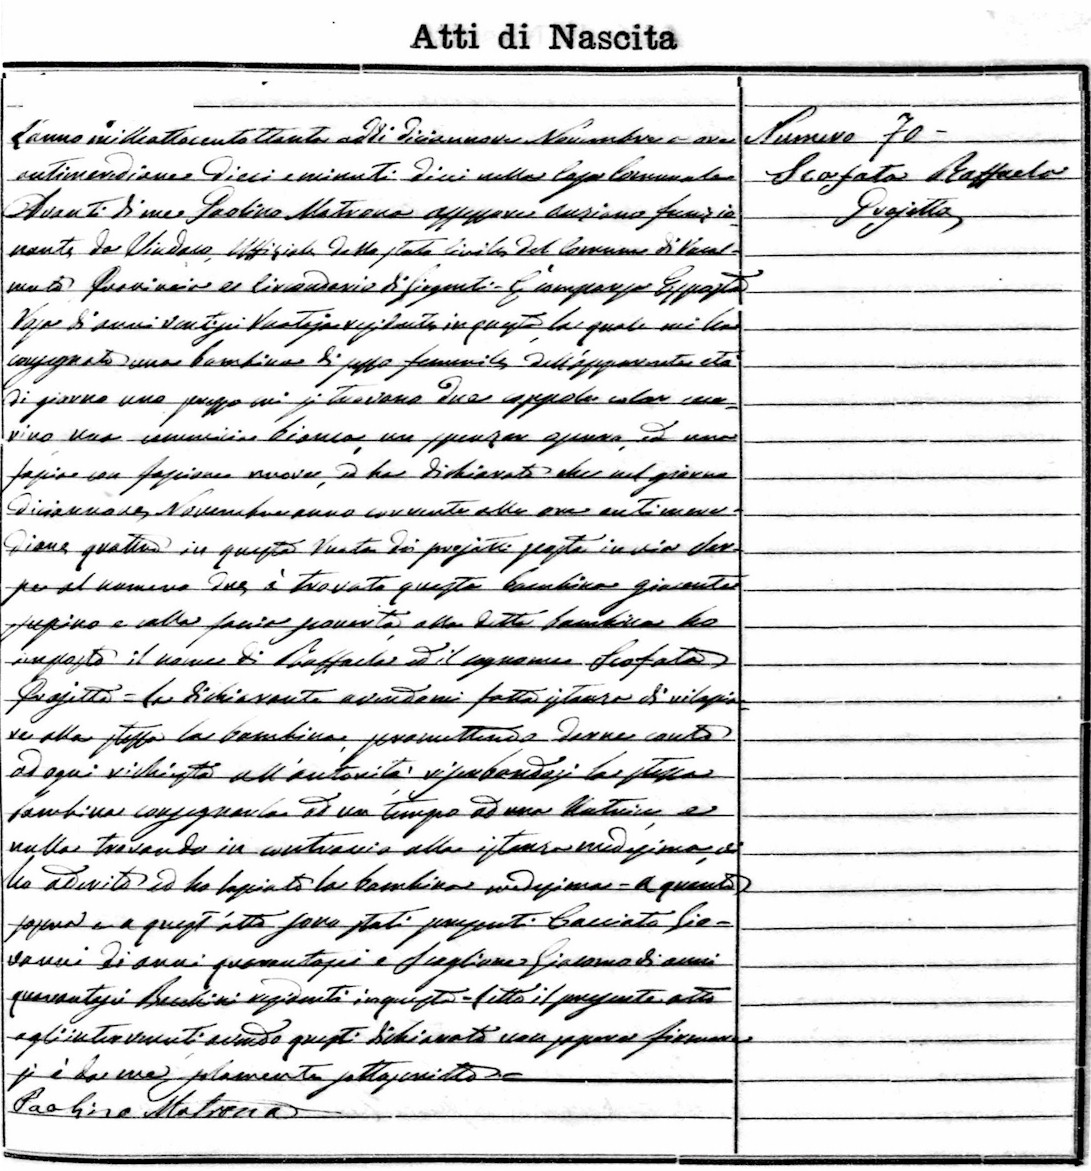 Atti di Nascita
L'anno milleottocentottanta addì diciannove Novembre a ore
antimeridiane dieci e minuti dieci nella Casa Comunale
Avanti di me Paolino Matrona assessore anziano funzio-
nante da Sindaco, Uffiziale dello stato civile del Comune di Racal-
muto Provincia e Circondario di Girgenti - È comparsa Esposta
di anni ventisei residente in questa la quale mi ha
consegnato una bambina di sesso femminile dell'apparente età
di giorno uno presso cui si trovano due coppole color ma-
rino una cammicia bianca un spenzer ed una
fascia con fascione nuova, ed ha dichiarato che nel giorno
diciannove Novembre anno corrente alle ore antimeri-
diane quattro in questa Ruota dei projetti posta in via
al numero due è trovata questa bambina giacente
supino e colla faccia alla detta bambina ho
imposto il nome di Raffaela ed il cognome Scofata
Projetta - La dichiarante avendomi fatta istanza di rilascia-
re alla stessa la bambina, promettendo darne conto
ad ogni richiesta all'autorità la stessa
bambina consegnarla ad un tempo ad una Nutrice e
nulla trovando in contrario alla istanza medesima, vi
ho aderito ed ho lasciato la bambina medesima - A quanto
sopra e a quest'atto sono stati presenti Cacciato Gio-
vanni di anni quarantasei e Scaglione Giacomo di anni
quarantasei Becchini residenti in questa - Letto il presente atto
agli intervenuti avendo questi dichiarato non sapere firmare
si è da me solamente sottoscritto -
Paolino Matrona
Numero 70 -
Scofata Raffaela
Projetta